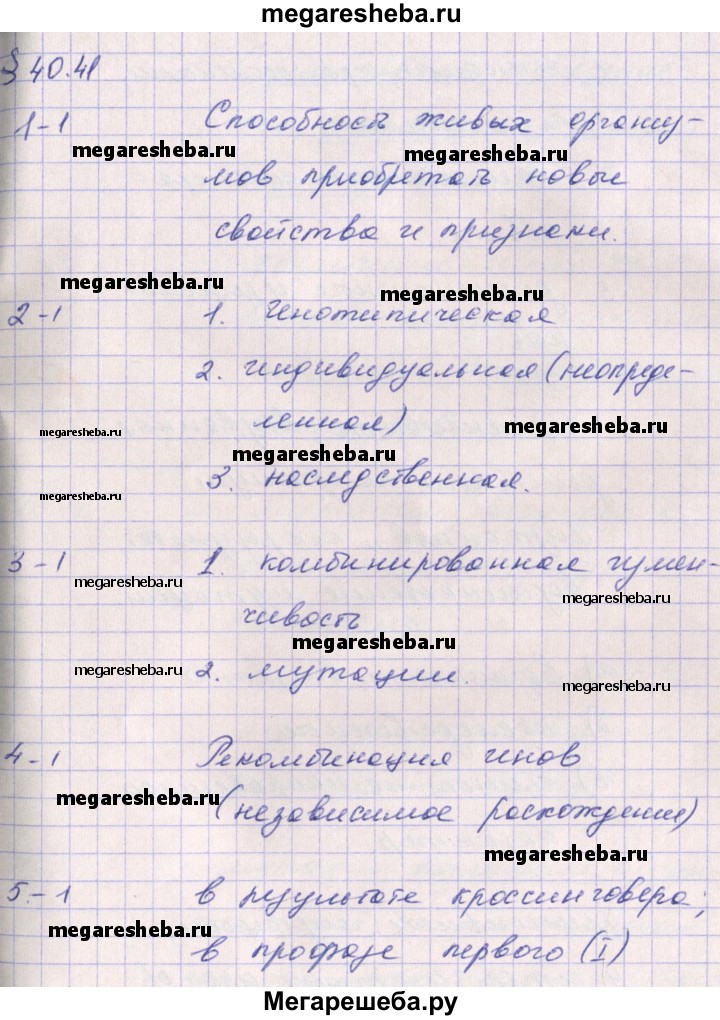 megaresheba.ru
§ 40.41
1-1 Способность живых организ-
megaresheba.ru megaresheba.ru
мов приобретать новые
свойства и признаки.
megaresheba.ru megaresheba.ru
2-1 1. Генотипическая
2. индивидуальная (неопреде-
megaresheba.ru ленная) megaresheba.ru
megaresheba.ru
megaresheba.ru 3. наследственная.
3-1 1. комбинированная измен-
megaresheba.ru megaresheba.ru
чивость
megaresheba.ru
megaresheba.ru 2. мутации. megaresheba.ru
4-1 Рекомбинация генов
megaresheba.ru (независимое расхождение)
megaresheba.ru
5.-1 в результате кроссинговера;
megaresheba.ru в профазе первого (I)
megaresheba.ru
Мегарешеба.ру